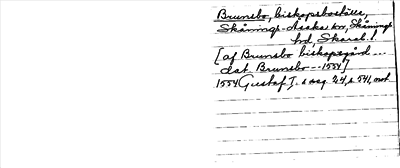 Brunsbo, biskopsboställe,
Skånings-Åsaka sn, Skånings
hd, Skarab. l.
[af Brunsbo biskopsgård...
dat. Brunsbo -- 1554]
1554 Gustaf I. s reg. 24, s 541, not